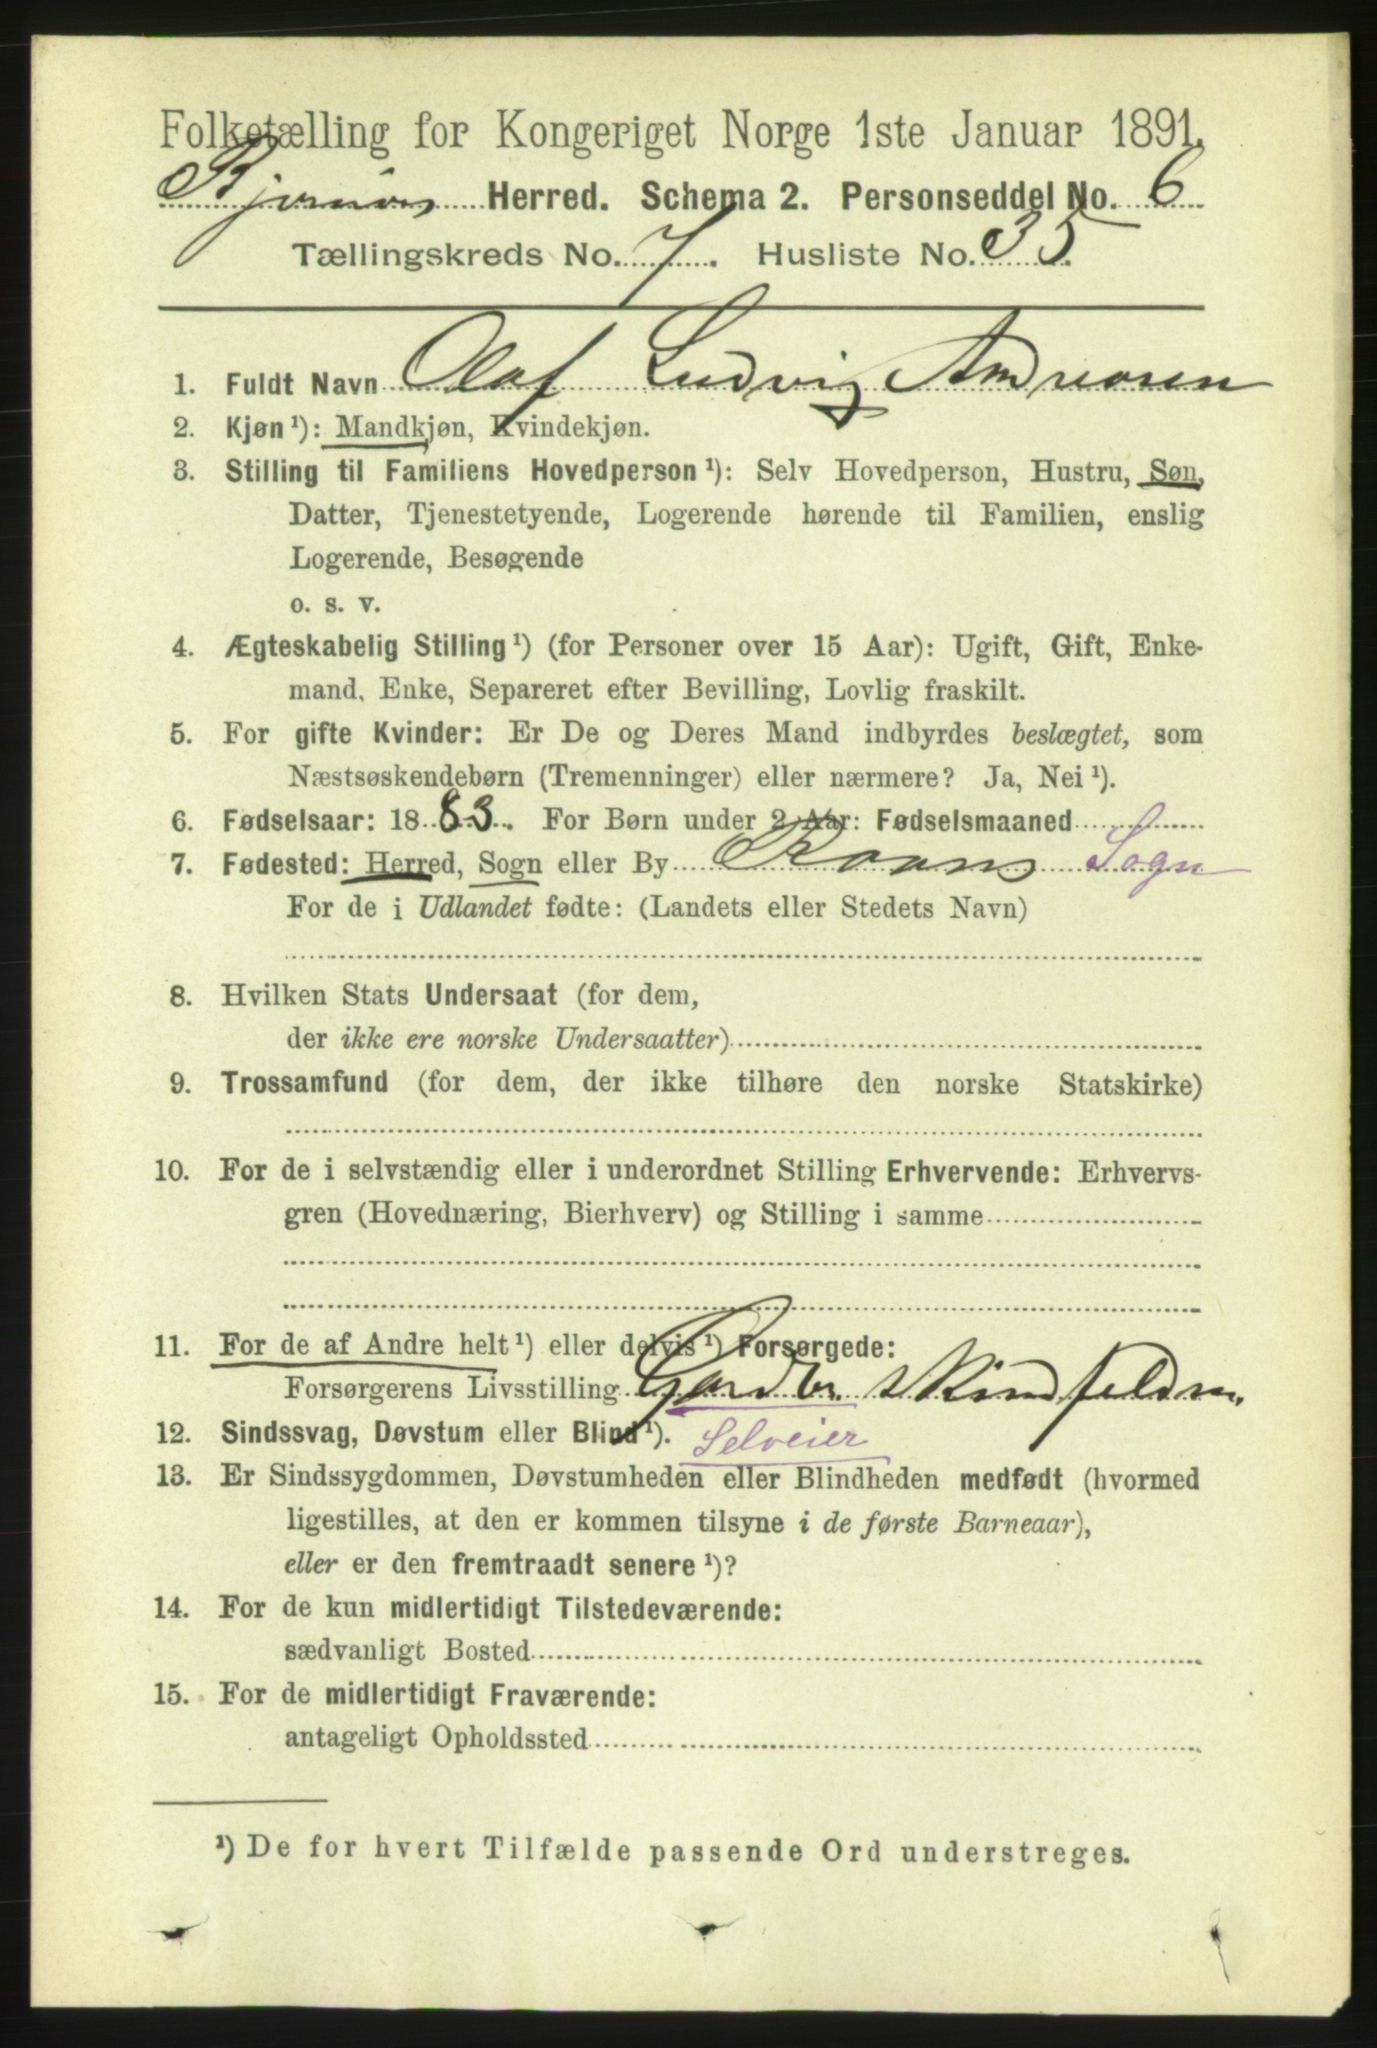 Folketælling for Kongeriget Norge 1ste Januar 1891.
Bjørnør Herred. Schema 2. Personseddel No. 6
Tællingskreds No. 7. Husliste No. 35.
1. Fuldt Navn Olaf Ludvig Andreasen
2. Kjøn ¹): Mandkjøn, Kvindekjøn.
3. Stilling til Familiens Hovedperson ¹): Selv Hovedperson, Hustru, Søn,
Datter, Tjenestetyende, Logerende hørende til Familien, enslig
Logerende, Besøgende
o. s. v.
4. Ægteskabelig Stilling ¹) (for Personer over 15 Aar): Ugift, Gift, Enke-
mand, Enke, Separeret efter Bevilling, Lovlig fraskilt.
5. For gifte Kvinder: Er De og Deres Mand indbyrdes beslægtet, som
Næstsøskendebørn (Tremenninger) eller nærmere? Ja, Nei ¹).
6. Fødselsaar: 1883. For Børn under 2 Aar: Fødselsmaaned
7. Fødested: Herred, Sogn eller By Roans Sogn
For de i Udlandet fødte: (Landets eller Stedets Navn)
8. Hvilken Stats Undersaat (for dem,
der ikke ere norske Undersaatter)
9. Trossamfund (for dem, der ikke tilhøre den norske Statskirke)
10. For de i selvstændig eller i underordnet Stilling Erhvervende: Erhvervs-
gren (Hovednæring, Bierhverv) og Stilling i samme
11. For de af Andre helt ¹) eller delvis ¹) Forsørgede:
Forsørgerens Livsstilling Gardbr. Skindfeldm.
12. Sindssvag, Døvstum eller Blind ¹). Selveier
13. Er Sindssygdommen, Døvstumheden eller Blindheden medfødt (hvormed
ligestilles, at den er kommen tilsyne i de første Barneaar),
eller er den fremtraadt senere ¹)?
14. For de kun midlertidigt Tilstedeværende:
sædvanligt Bosted
15. For de midlertidigt Fraværende:
antageligt Opholdssted
¹) De for hvert Tilfælde passende Ord understreges.